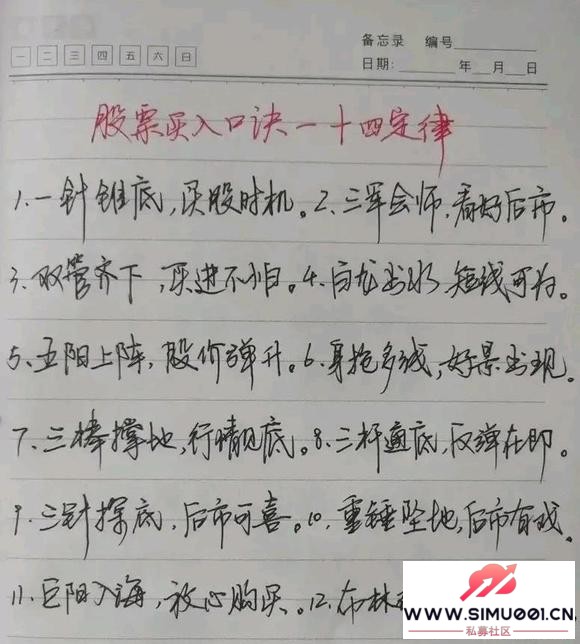 备忘录 编号
一 二 三 四 五 六 日
日期: 年 月 日
股票买入口诀一十四定律
1.一针锥底,买股时机。2.三军会师,看好后市。
3.双管齐下,买进不怕。4.白龙出水,短线可为。
5.五阳上阵,股价弹升。6.身抱多线,好景出现。
7.三棒撑地,行情见底。8.三杆通底,反弹在即。
9.三针探底,后市可喜。10.重锤坠地,后市有戏。
11.巨阳入海,放心购买。12.布林
WWW.SIMU001.CN
私募社区